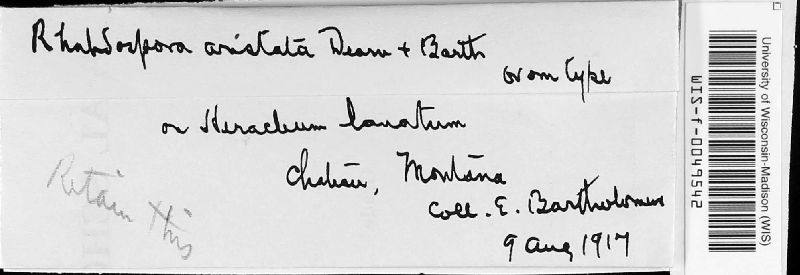 Rhabdospora aristata Dearn + Barth
on Heracleum lanatum
Montana
Coll. E. Bartholomew
9 Aug 1917
Retain this
University of Wisconsin-Madison (WIS)
WIS-f-0049542